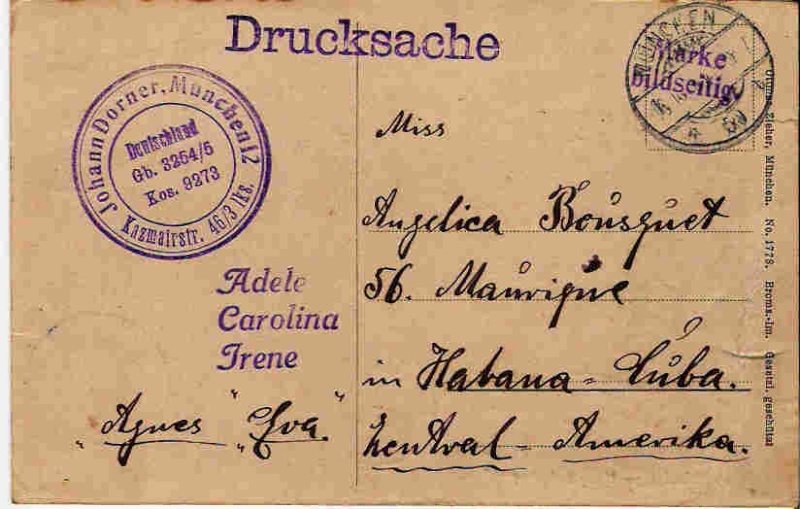 Drucksache
Johann Dorner, München 12
Deutschland
Gb. 3254/5
Kos. 9273
Kazmairstr. 46/3 lks.
MÜNCHEN
Marke
bildseitig.
Miss
Angelica Bousquet
56. Maurique
in Habana - Cuba.
Zentral - Amerika.
Adele
Carolina
Irene
"Agnes" "Eva"
Ottmar Zieher, München. No. 1778. Broms.-Im. Gesetzl. geschützt